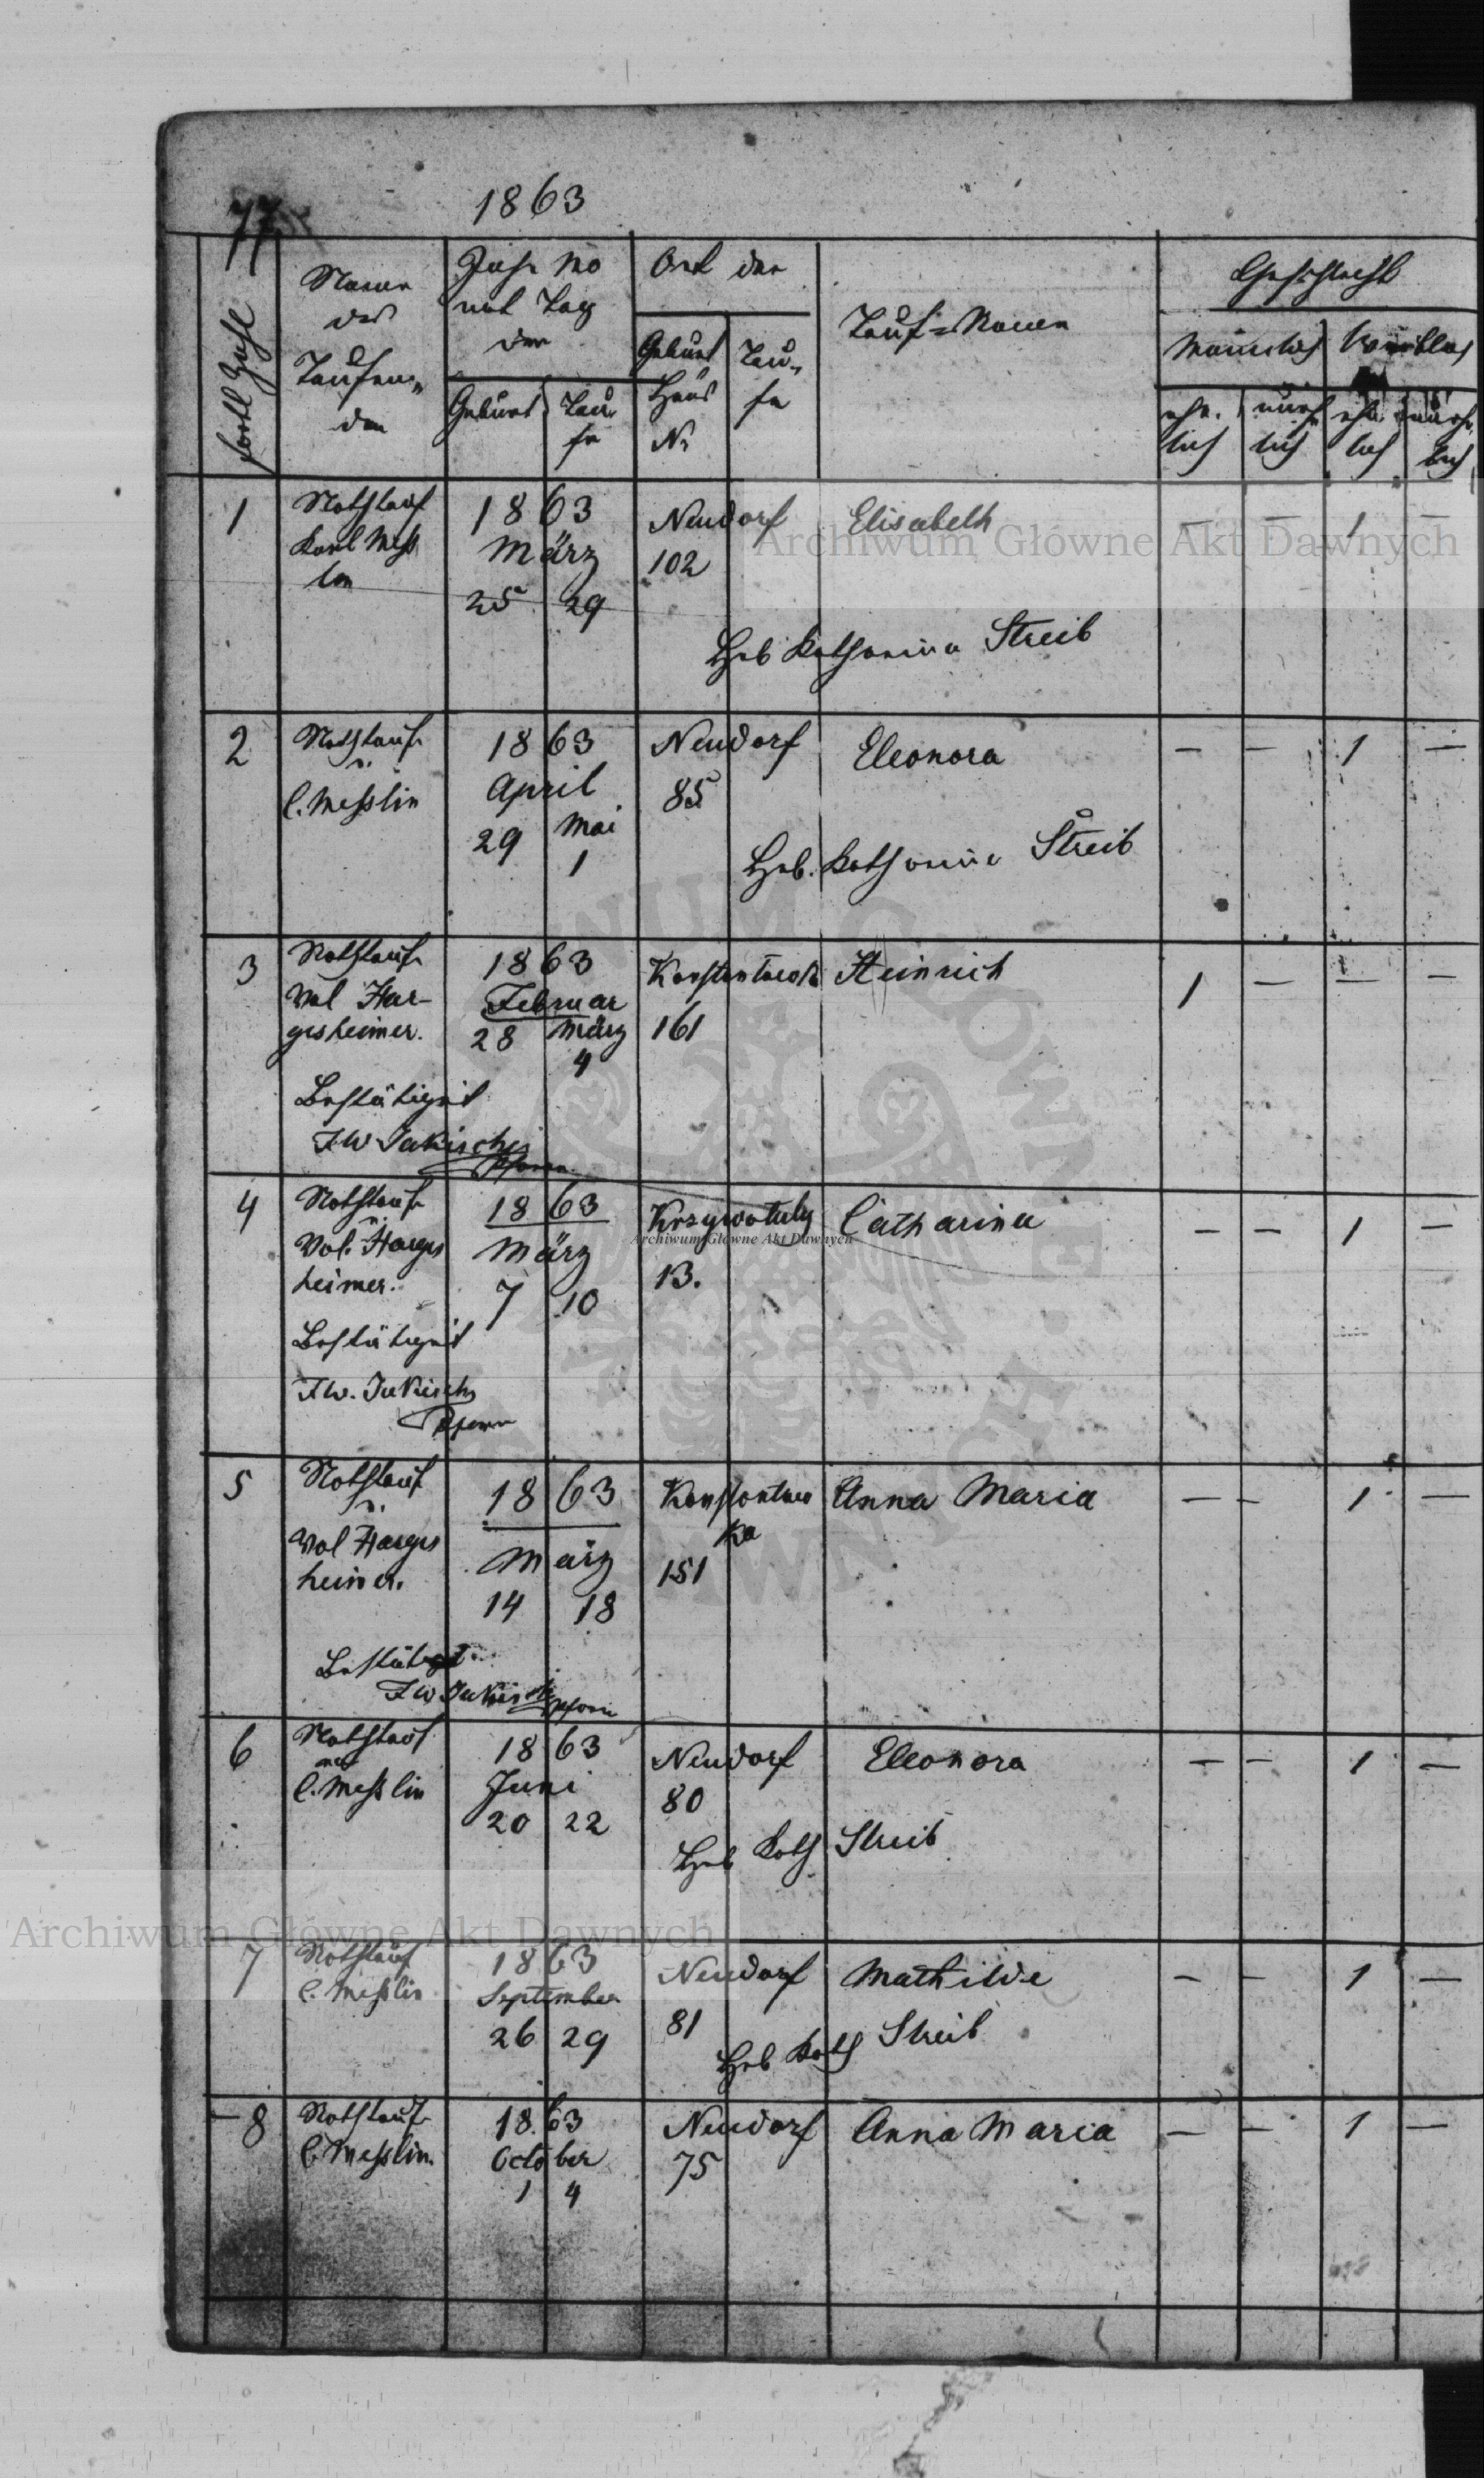 77
1863
fortl Zahl
Name
des
Taufen-
den
Jahr Mo
nat Tag
der
Geburt
Tau-
fe
Ort der
Geburt
Haus
Nr
Tau-
fe
Tauf-Namen
Geschlecht
Männlich
Weiblich
ehe-
lich
unehe
lich
ehe
lich
unehe
lich
1
Nothtauf
Karl Mess
lin
1863
März
25 29
Neudorf
102
Elisabeth
Heb Katharina Streib
— — 1 —
2
Nothtauf
v.
C. Messlin
1863
April
29 Mai
1
Neudorf
85
Eleonora
Heb. Katharina Streib
— — 1 —
3
Nothtauf
Val Har-
gesheimer.
Bestätigt
FW Jakisch
Pfarrer
1863
Februar
28 März
4
161
Heinrich
1 — — —
4
Nothtauf
v.
Val. Harges
heimer.
Bestätigt
F.W. Jakisch
Pfarrer
1863
März
7 10
Krzywotuly
13.
Catharina
— — 1 —
5
Nothtauf
v.
Val Harges
heimer.
Bestätigt
F W Jakisch Pfarrer
1863
März
14 18
Konstantow
ka
151
Anna Maria
— — 1 —
6
Nothtauf
C. Messlin
1863
Juni
20 22
Neudorf
80
Eleonora
Heb Kath Streib
— — 1 —
7
Nothtauf
C. Messlin
1863
September
26 29
Neudorf
81
Mathilde
Heb Kath Streib
— — 1 —
8
Nothtauf
C. Messlin.
1863
October
1 4
Neudorf
75
Anna Maria
— — 1 —
Archiwum Główne Akt Dawnych
Archiwum Główne Akt Dawnych
Archiwum Główne Akt Dawnych